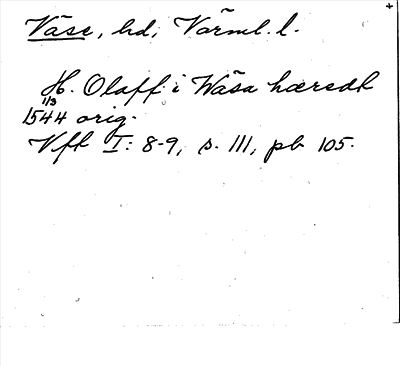 Väse, hd, Värml. l.
H. Olaff i Wäsa hæredh
1/3
1544 orig.
Vfh I: 8-9, s. 111, pb 105.